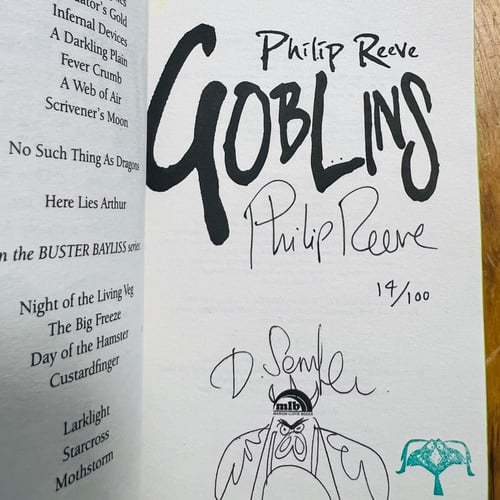 ator's Gold
Infernal Devices
A Darkling Plain
Fever Crumb
A Web of Air
Scrivener's Moon
No Such Thing As Dragons
Here Lies Arthur
n the BUSTER BAYLISS series
Night of the Living Veg
The Big Freeze
Day of the Hamster
Custardfinger
Larklight
Starcross
Mothstorm
Philip Reeve
GOBLINS
Philip Reeve
14/100
D.
mlb
MARION LLOYD BOOKS